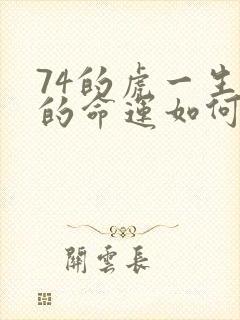 74的虎一生
的命運如何
關雲長